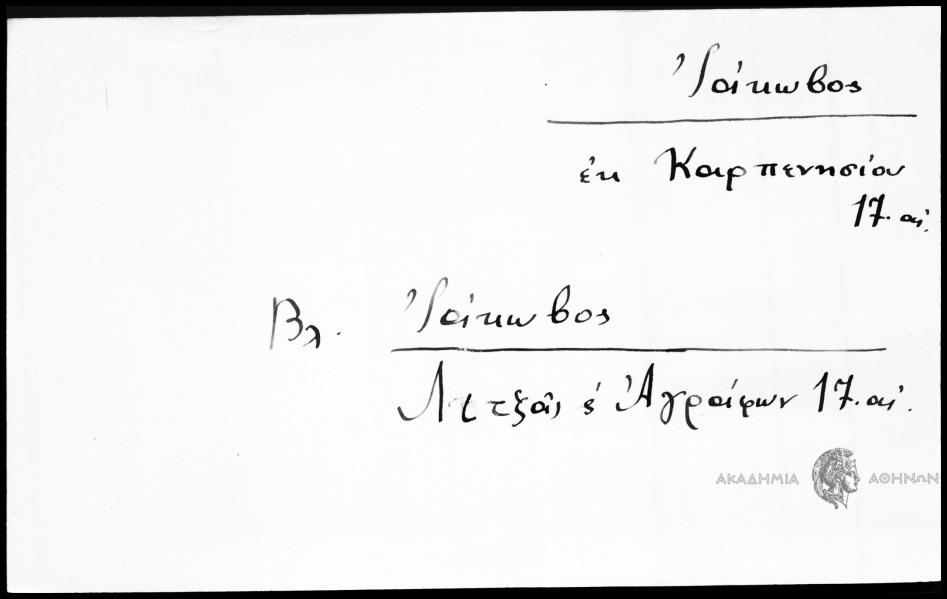 Ἰάκωβος
ἐκ Καρπενησίου
17. αἰ.
Βλ. Ἰάκωβος
Λιτζᾶς ἐ Ἀγράφων 17. αἰ.
ΑΚΑΔΗΜΙΑ ΑΘΗΝΩΝ